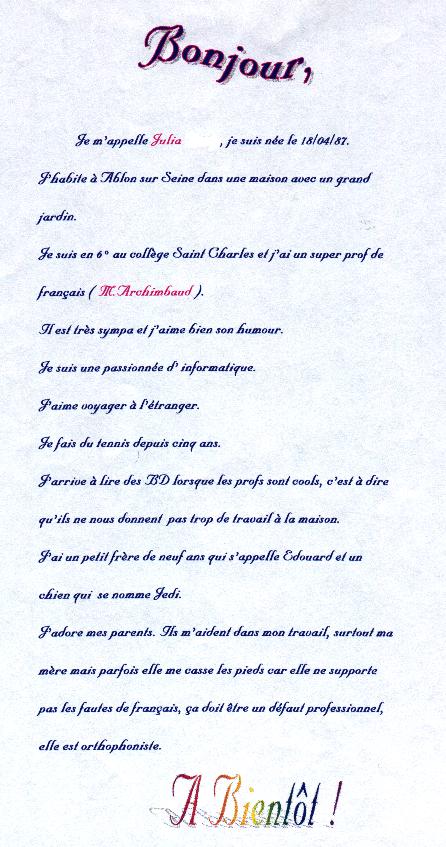 Bonjour,
Je m'appelle Julia , je suis née le 18/04/87.
J'habite à Ablon sur Seine dans une maison avec un grand
jardin.
Je suis en 6° au collège Saint Charles et j'ai un super prof de
français ( M. Archimbaud ).
Il est très sympa et j'aime bien son humour.
Je suis une passionnée d' informatique.
J'aime voyager à l'étranger.
Je fais du tennis depuis cinq ans.
J'arrive à lire des BD lorsque les profs sont cools, c'est à dire
qu'ils ne nous donnent pas trop de travail à la maison.
J'ai un petit frère de neuf ans qui s'appelle Edouard et un
chien qui se nomme Jedi.
J'adore mes parents. Ils m'aident dans mon travail, surtout ma
mère mais parfois elle me casse les pieds car elle ne supporte
pas les fautes de français, ça doit être un défaut professionnel,
elle est orthophoniste.
A Bientôt !